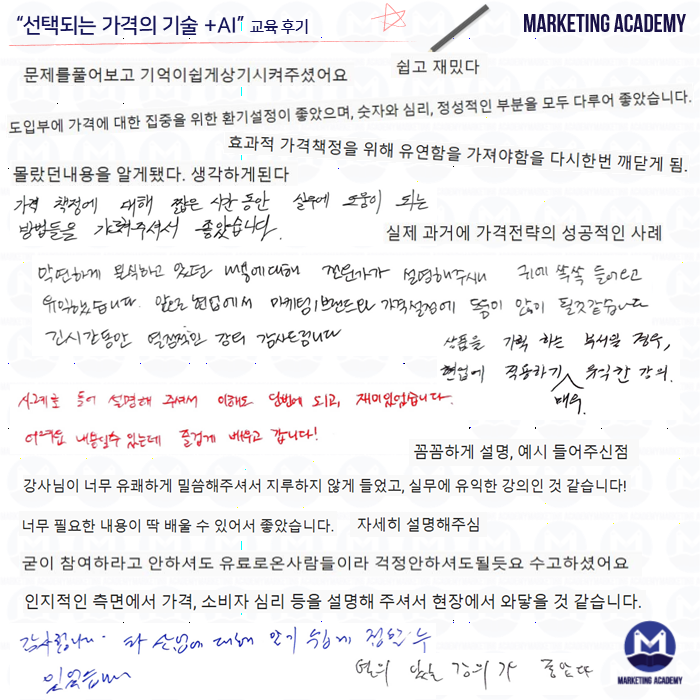 “선택되는 가격의 기술 +AI” 교육 후기
MARKETING ACADEMY
문제를풀어보고 기억이쉽게상기시켜주셨어요
쉽고 재밌다
도입부에 가격에 대한 집중을 위한 환기설정이 좋았으며, 숫자와 심리, 정성적인 부분을 모두 다루어 좋았습니다.
효과적 가격책정을 위해 유연함을 가져야함을 다시한번 깨닫게 됨.
몰랐던내용을 알게됐다. 생각하게된다
가격 책정에 대해 짧은 시간 동안 실무에 도움이 되는
방법들을 가르쳐주셔서 좋았습니다.
실제 과거에 가격전략의 성공적인 사례
막연하게 인식하고 있었던 내용에 대해 전문가가 설명해주시니 귀에 쏙쏙 들어오고
유익했습니다. 앞으로 현업에서 마케팅/브랜드와 가격설정에 도움이 많이 될것같습니다
긴시간동안 열정적인 강의 감사드립니다
상품을 기획 하는 부서일 경우,
현업에 적용하기 매우 유익한 강의.
사례로 들어 설명해 주셔서 이해도 단번에 되고, 재미있었습니다.
어려운 내용일수 있는데 즐겁게 배우고 갑니다!
꼼꼼하게 설명, 예시 들어주신점
강사님이 너무 유쾌하게 밀씀해주셔서 지루하지 않게 들었고, 실무에 유익한 강의인 것 같습니다!
너무 필요한 내용이 딱 배울 수 있어서 좋았습니다.
자세히 설명해주심
굳이 참여하라고 안하셔도 유료로온사람들이라 걱정안하셔도될듯요 수고하셨어요
인지적인 측면에서 가격, 소비자 심리 등을 설명해 주셔서 현장에서 와닿을 것 같습니다.
감사합니다. 타 산업에 대해 알기 쉽게 접할 수
있었습니다
강의가 좋았다
MARKETING ACADEMY